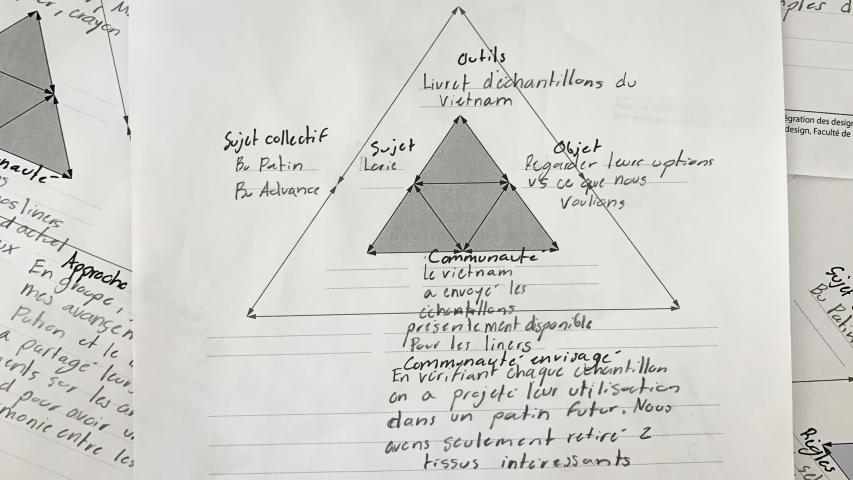 crayon
Outils
Livret d'échantillons du
Vietnam
Sujet collectif
Bu Patin
Bu Advance
Sujet
Lorie
Objet
Regarder leurs options
vs ce que nous
voulions
Communauté
le vietnam
a envoyé les
échantillons
présentement disponible
pour les liners
Communauté envisagé
En vérifiant chaque échantillon
on a projeté leur utilisation
dans un patin futur. Nous
avons seulement retiré 2
tissus intéressants
nauté
liners
d'actuel
Approche
En groupe,
mes
et le
a partagé leur
sur les
pour avoir
entre les
ples d
égration des design
design, Faculté de
Sujet
Bu Patin
Règles